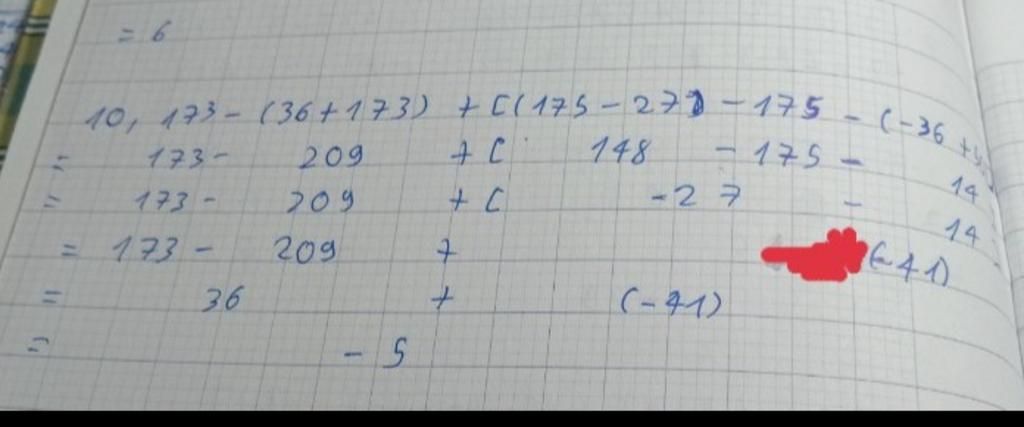 = 6
10, 173 - (36 + 173) + [(175 - 27) - 175 - (-36 +
= 173 - 209 + [ 148 - 175 - 14
= 173 - 209 + [ -27 - 14
= 173 - 209 + (-41)
= 36 + (-41)
= - 5